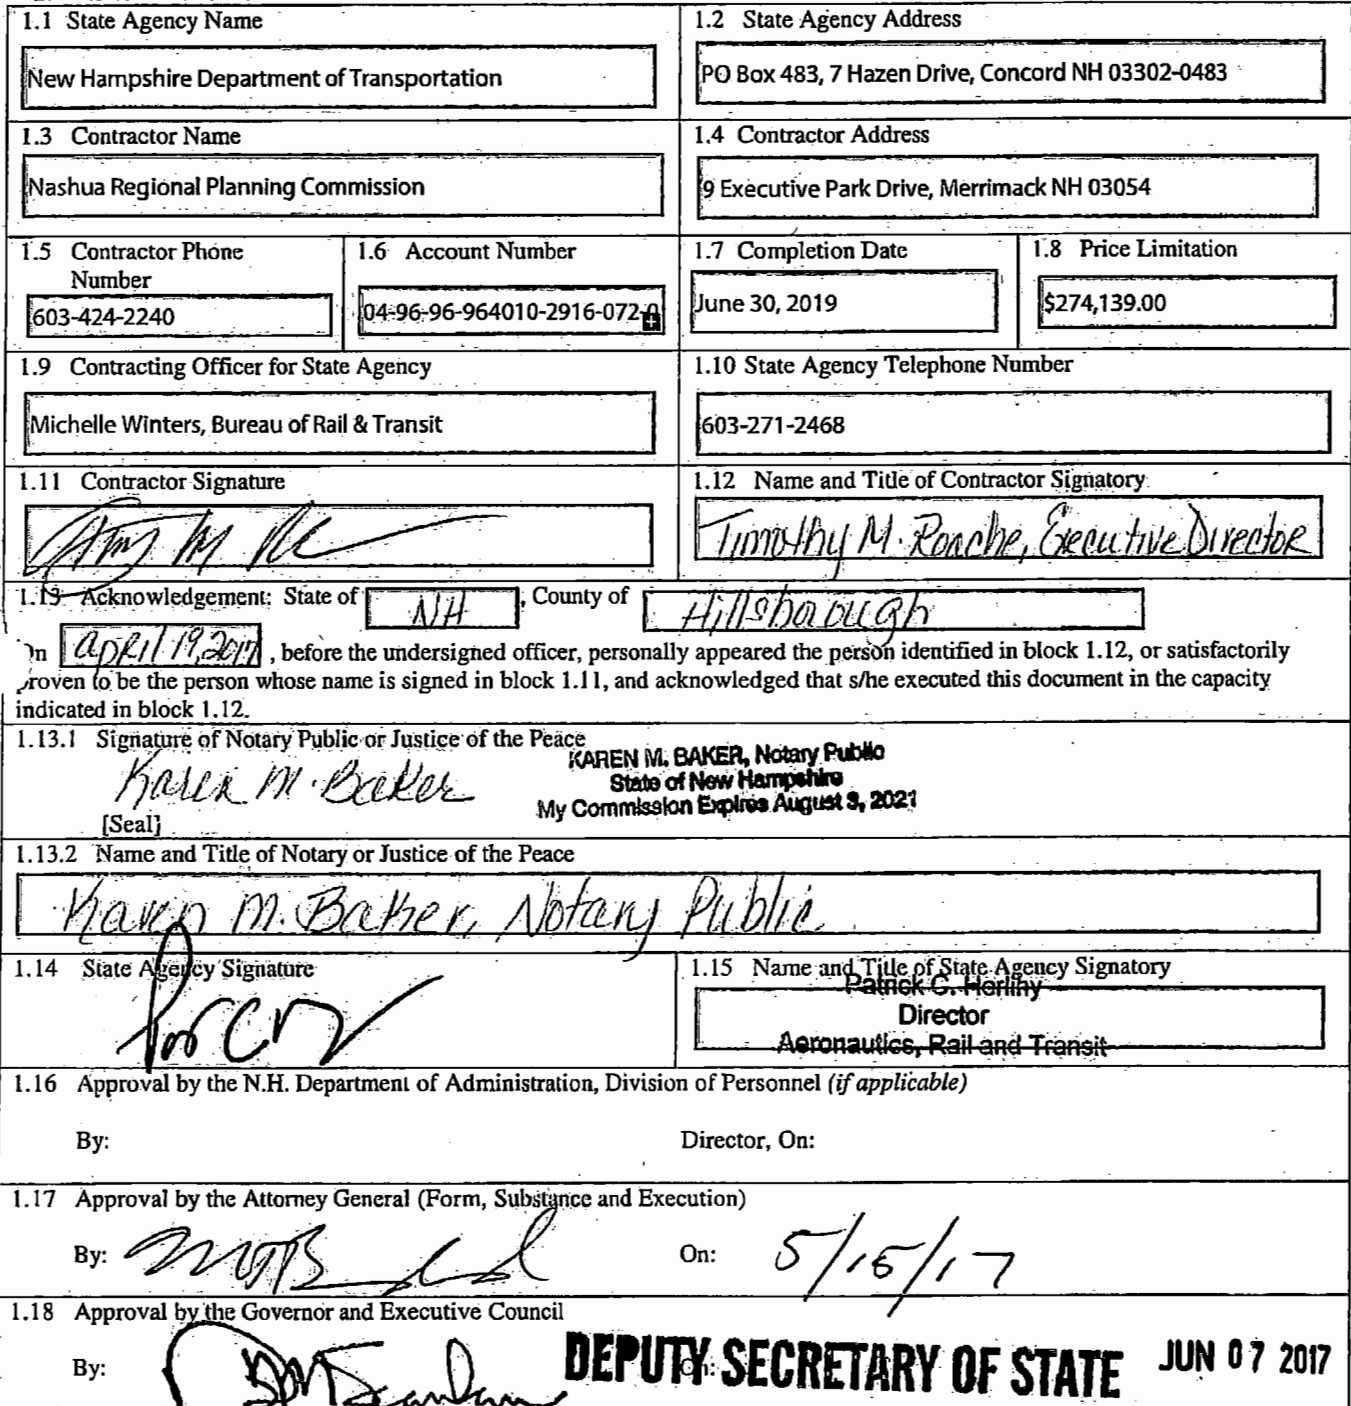 1.1 State Agency Name
New Hampshire Department of Transportation
1.2 State Agency Address
PO Box 483, 7 Hazen Drive, Concord NH 03302-0483
1.3 Contractor Name
Nashua Regional Planning Commission
1.4 Contractor Address
9 Executive Park Drive, Merrimack NH 03054
1.5 Contractor Phone
Number
603-424-2240
1.6 Account Number
04-96-96-964010-2916-072-0
1.7 Completion Date
June 30, 2019
1.8 Price Limitation
$274,139.00
1.9 Contracting Officer for State Agency
Michelle Winters, Bureau of Rail & Transit
1.10 State Agency Telephone Number
603-271-2468
1.11 Contractor Signature
1.12 Name and Title of Contractor Signatory
Timothy M. Roache, Executive Director
1.13 Acknowledgement: State of NH, County of Hillsborough
On April 19, 2017, before the undersigned officer, personally appeared the person identified in block 1.12, or satisfactorily
proven to be the person whose name is signed in block 1.11, and acknowledged that s/he executed this document in the capacity
indicated in block 1.12.
1.13.1 Signature of Notary Public or Justice of the Peace
Karen M. Baker
[Seal]
KAREN M. BAKER, Notary Public
State of New Hampshire
My Commission Expires August 3, 2021
1.13.2 Name and Title of Notary or Justice of the Peace
Karen M. Baker, Notary Public
1.14 State Agency Signature
1.15 Name and Title of State Agency Signatory
Patrick C. Herlihy
Director
Aeronautics, Rail and Transit
1.16 Approval by the N.H. Department of Administration, Division of Personnel (if applicable)
By: Director, On:
1.17 Approval by the Attorney General (Form, Substance and Execution)
By: On: 5/15/17
1.18 Approval by the Governor and Executive Council
By: On: DEPUTY SECRETARY OF STATE JUN 07 2017